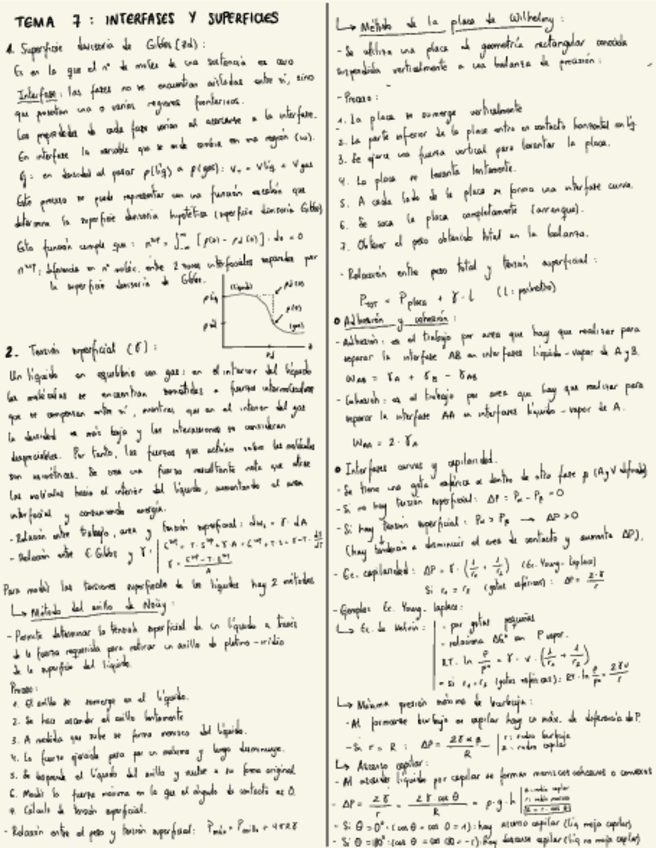 TEMA 7: INTERFASES Y SUPERFICIES
1. Superficie divisoria de Gibbs (2d):
Es en la que el nº de moles de una sustancia es cero
Interfase: las fases no se encuentran aisladas entre sí, sino
que presentan una o varias regiones fronterizas.
Las propiedades de cada fase varían al acercarse a la interfase.
En interfase la variable que se mide cambia en una región (w).
Ej: en densidad al pasar ρ(líq) a ρ(gas):
Este proceso se puede representar con una función escalón que
determina la superficie divisoria hipotética (superficie divisoria Gibbs)
Esta función cumple que:
diferencia en nº moléc. entre 2 zonas interfaciales separadas por
la superficie divisoria de Gibbs.
(líquido)
(gas)
2. Tensión superficial (γ):
Un líquido en equilibrio con gas: en el interior del líquido
las moléculas se encuentran sometidas a fuerzas intermoleculares
que se compensan entre sí, mientras que en el interior del gas
la densidad es más baja y las interacciones se consideran
despreciables. Por tanto, las fuerzas que actúan sobre las moléculas
son asimétricas. Se crea una fuerza resultante neta que atrae
las moléculas hacia el interior del líquido, aumentando el área
interfacial y consumiendo energía.
- Relación entre trabajo, área y tensión superficial:
- Relación entre E. Gibbs y γ:
Para medir las tensiones superficiales de los líquidos hay 2 métodos
↳ Método del anillo de Noüy:
- Permite determinar la tensión superficial de un líquido a través
de la fuerza requerida para retirar un anillo de platino-iridio
de la superficie del líquido.
Proceso:
1. El anillo se sumerge en el líquido.
2. Se hace ascender al anillo lentamente
3. A medida que sube se forma menisco del líquido.
4. La fuerza ejercida pasa por un máximo y luego disminuye.
5. Se desprende el líquido del anillo y vuelve a su forma original.
6. Medir la fuerza máxima en la que el ángulo de contacto es 0.
7. Cálculo de tensión superficial.
- Relación entre el peso y tensión superficial: Pmáx = Panillo + 4πRγ
↳ Método de la placa de Wilhelmy:
- Se utiliza una placa de geometría rectangular conocida
suspendida verticalmente a una balanza de precisión.
- Proceso:
1. La placa se sumerge verticalmente
2. La parte inferior de la placa entra en contacto horizontal con líq.
3. Se ejerce una fuerza vertical para levantar la placa.
4. La placa se levanta lentamente.
5. A cada lado de la placa se forma una interfase curva.
6. Se saca la placa completamente (arranque).
7. Obtener el peso obtenido total en la balanza.
- Relación entre peso total y tensión superficial:
PTOT = Pplaca + γ · L (L: perímetro)
• Adhesión y cohesión:
- Adhesión: es el trabajo por área que hay que realizar para
separar la interfase AB en interfases líquido-vapor de A y B.
WAB = γA + γB - γAB
- Cohesión: es el trabajo por área que hay que realizar para
separar la interfase AA en interfases líquido-vapor de A.
WAA = 2 · γA
• Interfases curvas y capilaridad.
- Se tiene una gota esférica α dentro de otra fase β
- Si no hay tensión superficial: ΔP = Pα - Pβ = 0
- Si hay tensión superficial: Pα > Pβ → ΔP > 0
(hay tendencia a disminuir el área de contacto y aumenta ΔP).
- Ec. capilaridad: ΔP = γ · (1/r1 + 1/r2) (Ec. Young-Laplace)
Si r1 = r2 (gotas esféricas): ΔP = 2·γ/r
- Ejemplos Ec. Young-Laplace:
↳ Ec. de Kelvin: - para gotas pequeñas
- relaciona ΔG con P vapor.
RT · ln p/p° = γ · v · (1/r1 + 1/r2)
- Si r1 = r2 (gotas esféricas): RT · ln p/p° = 2γv/r
↳ Máxima presión máxima de burbuja:
- Al formarse burbuja en capilar hay un máx. de diferencia de P.
- Si r = R: r: radio burbuja
R: radio capilar
↳ Ascenso capilar:
- Al ascender líquido por capilar se forman meniscos cóncavos o convexos
- ΔP = 2γ/r = 2γ cos θ/R = ρ·g·h
- Si θ = 0° (cos θ = cos 0 = 1): hay ascenso capilar (líq moja capilar)
hay descenso capilar (líq no moja capilar)